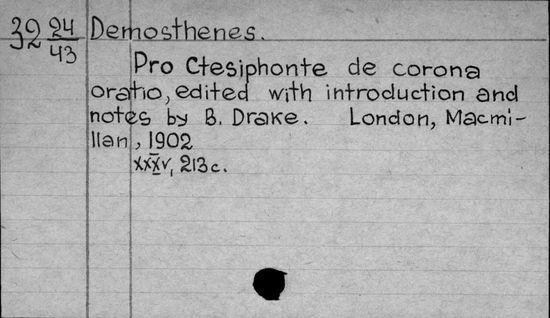 32 24/43 Demosthenes.
Pro Ctesiphonte de corona
oratio, edited with introduction and
notes by B. Drake. London, Macmi-
llan, 1902
xxxv, 213 c.